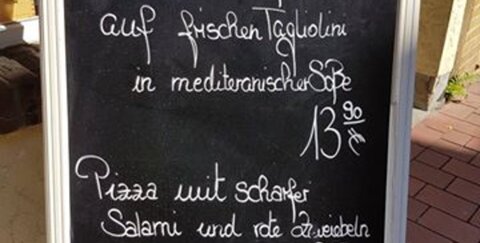 auf frischen Tagliolini
in mediteranischer Soße
13 90 €
Pizza mit scharfer
Salami und rote Zwiebeln